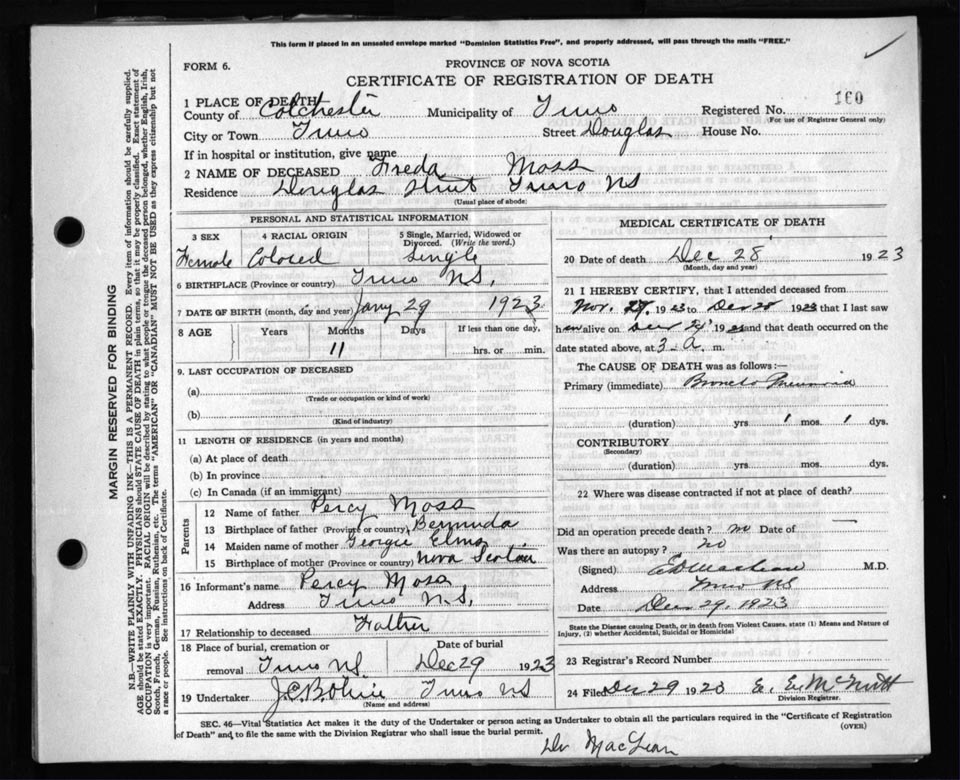 This form if placed in an unsealed envelope marked "Dominion Statistics Free", and properly addressed, will pass through the mails "FREE."
FORM 6.
PROVINCE OF NOVA SCOTIA
CERTIFICATE OF REGISTRATION OF DEATH
1 PLACE OF DEATH
County of Colchester Municipality of Truro Registered No. 160
(For use of Registrar General only)
City or Town Truro Street Douglas House No.
If in hospital or institution, give name
2 NAME OF DECEASED Freda Moss
Residence Douglas Street Truro NS
(Usual place of abode)
PERSONAL AND STATISTICAL INFORMATION
3 SEX 4 RACIAL ORIGIN 5 Single, Married, Widowed or Divorced. (Write the word.)
Female Colored Single
6 BIRTHPLACE (Province or country) Truro NS,
7 DATE OF BIRTH (month, day and year) Jany 29 1923
8 AGE Years Months Days If less than one day,
11 hrs. or min.
9. LAST OCCUPATION OF DECEASED
(a)
(Trade or occupation or kind of work)
(b)
(Kind of industry)
11 LENGTH OF RESIDENCE (in years and months)
(a) At place of death
(b) In province
(c) In Canada (if an immigrant)
Parents
12 Name of father Percy Moss
13 Birthplace of father (Province or country) Bermuda
14 Maiden name of mother Georgie
15 Birthplace of mother (Province or country) Nova Scotia
16 Informant's name Percy Moss
Address Truro N.S,
17 Relationship to deceased Father
18 Place of burial, cremation or removal Truro NS Date of burial Dec 29 1923
19 Undertaker Truro NS
(Name and address)
MEDICAL CERTIFICATE OF DEATH
20 Date of death Dec 28 1923
(Month, day and year)
21 I HEREBY CERTIFY, that I attended deceased from
Nov. 27, 1923 to Dec 28 1923 that I last saw
h alive on Dec and that death occurred on the
date stated above, at 3 a. m.
The CAUSE OF DEATH was as follows:—
Primary (immediate) Broncho Pneumonia
(duration) yrs 1 mos. 1 dys.
CONTRIBUTORY
(Secondary)
(duration) yrs. mos. dys.
22 Where was disease contracted if not at place of death?
Did an operation precede death? no Date of —
Was there an autopsy? no
(Signed) M.D.
Address Truro NS
Date Dec 29, 1923
State the Disease causing Death, or in death from Violent Causes, state (1) Means and Nature of Injury, (2) whether Accidental, Suicidal or Homicidal
23 Registrar's Record Number
24 Filed Dec 29 1923 E. E. McNutt
Division Registrar.
SEC. 46—Vital Statistics Act makes it the duty of the Undertaker or person acting as Undertaker to obtain all the particulars required in the "Certificate of Registration
of Death" and to file the same with the Division Registrar who shall issue the burial permit.
(OVER)
Dr MacLean
MARGIN RESERVED FOR BINDING
N.B.—WRITE PLAINLY WITH UNFADING INK—THIS IS A PERMANENT RECORD. Every item of information should be carefully supplied.
AGE should be stated EXACTLY. PHYSICIANS should STATE CAUSE OF DEATH in plain terms, so that it may be properly classified. Exact statement of
OCCUPATION is very important. RACIAL ORIGIN will be described by stating to what people or tongue the deceased person belonged, whether English, Irish,
Scotch, French, German, Russian, Ruthenian, etc. The terms "AMERICAN" OR "CANADIAN" MUST NOT BE USED as they express citizenship but not
a race or people. See instructions on back of Certificate.